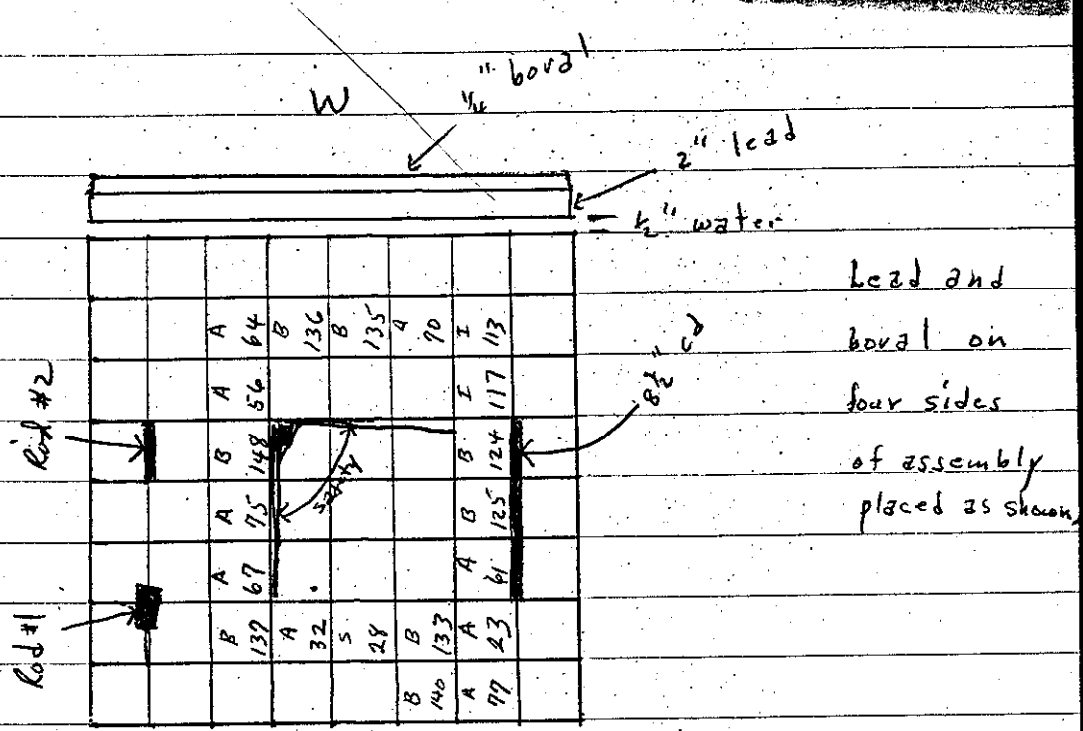 W
1/4" boral
2" lead
1/2" water
Lead and
boral on
four sides
of assembly
placed as shown
8 1/2" cd
Rod #2
Rod #1
safety
A 64 B 136 B 135 A 70 I 113
A 56 I 117
B 148 B 124
A 75 B 125
A 67 A 61
B 139 A 32 S 28 B 133 A 23
B 140 A 77